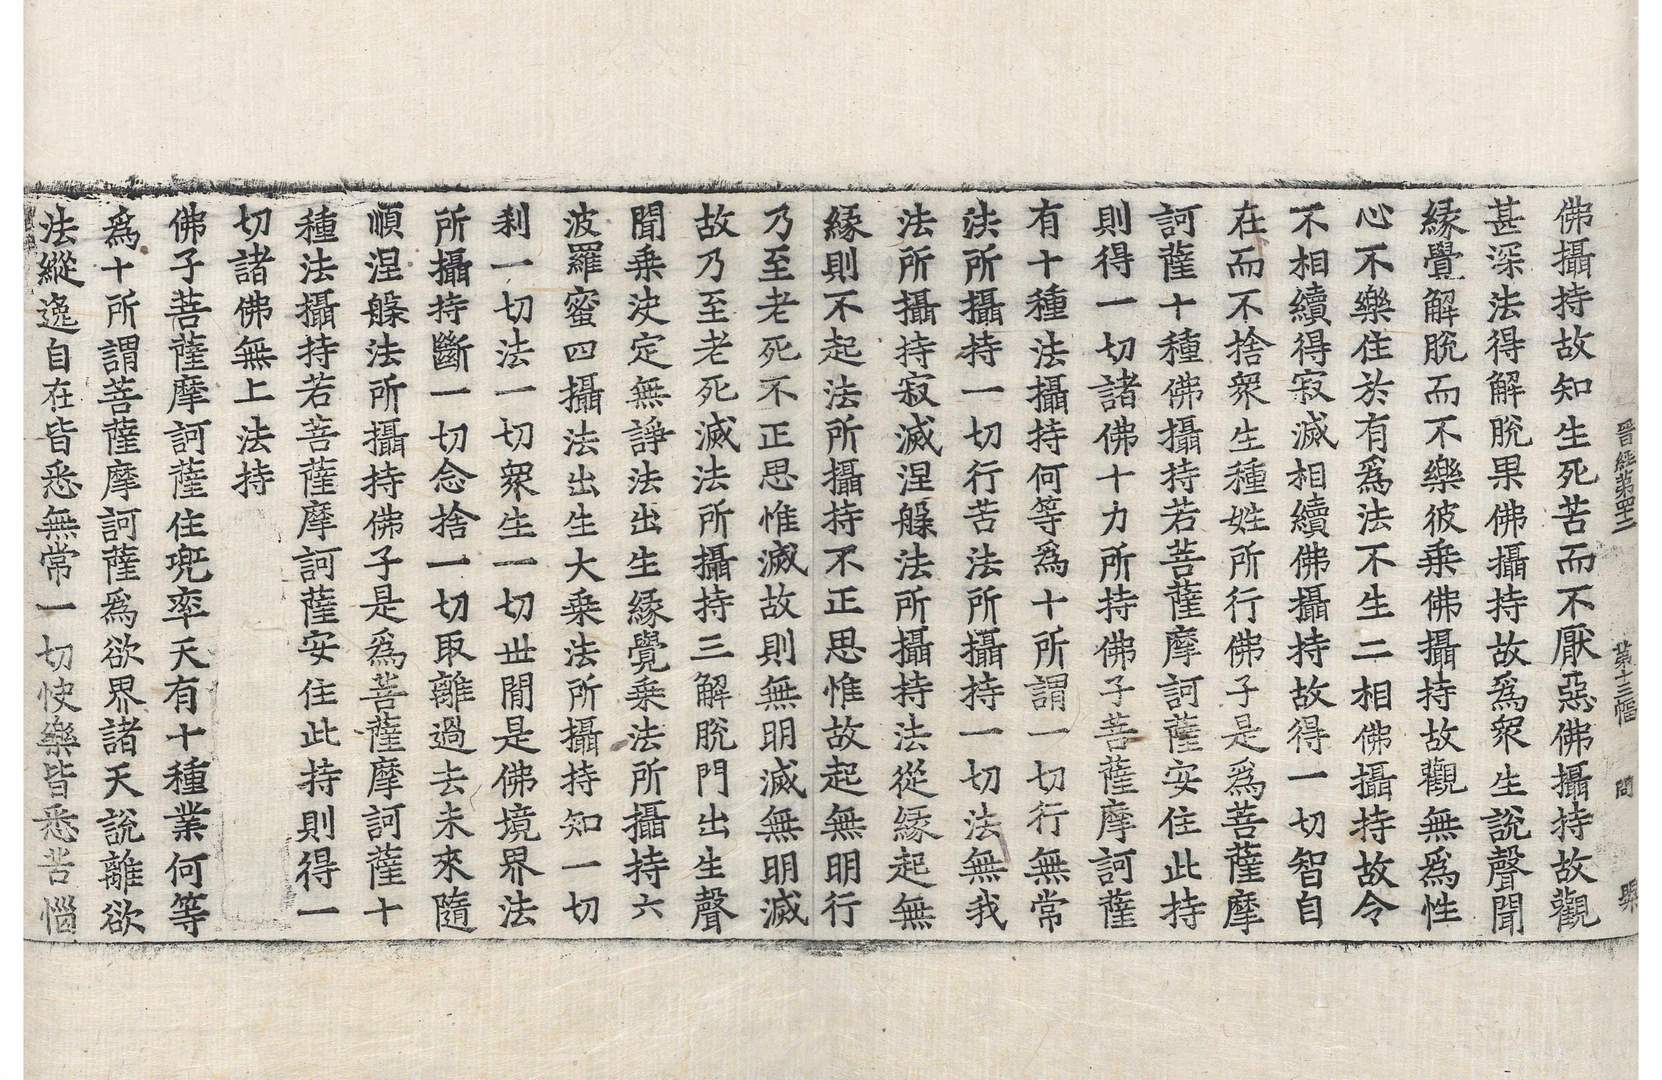 晉經第二 第十三幅
佛攝持故知生死苦而不厭惡佛攝持故觀
甚深法得解脫果佛攝持故爲衆生說聲聞
緣覺解脫而不樂彼乘佛攝持故觀無爲性
心不樂住於有爲法不生二相佛攝持故令
不相續得寂滅相續佛攝持故得一切智自
在而不捨衆生種姓所行佛子是爲菩薩摩
訶薩十種佛攝持若菩薩摩訶薩安住此持
則得一切諸佛十力所持佛子菩薩摩訶薩
有十種法攝持何等爲十所謂一切行無常
法所攝持一切行苦法所攝持一切法無我
法所攝持寂滅涅槃法所攝持法從緣起無
緣則不起法所攝持不正思惟故起無明行
乃至老死不正思惟滅故則無明滅無明滅
故乃至老死滅法所攝持三解脫門出生聲
聞乘決定無諍法出生緣覺乘法所攝持六
波羅蜜四攝法出生大乘法所攝持知一切
刹一切法一切衆生一切世間是佛境界法
所攝持斷一切念捨一切取離過去未來隨
順涅槃法所攝持佛子是爲菩薩摩訶薩十
種法攝持若菩薩摩訶薩安住此持則得一
切諸佛無上法持
佛子菩薩摩訶薩住兜率天有十種業何等
爲十所謂菩薩摩訶薩爲欲界諸天說離欲
法縱逸自在皆悉無常一切快樂皆悉苦惱